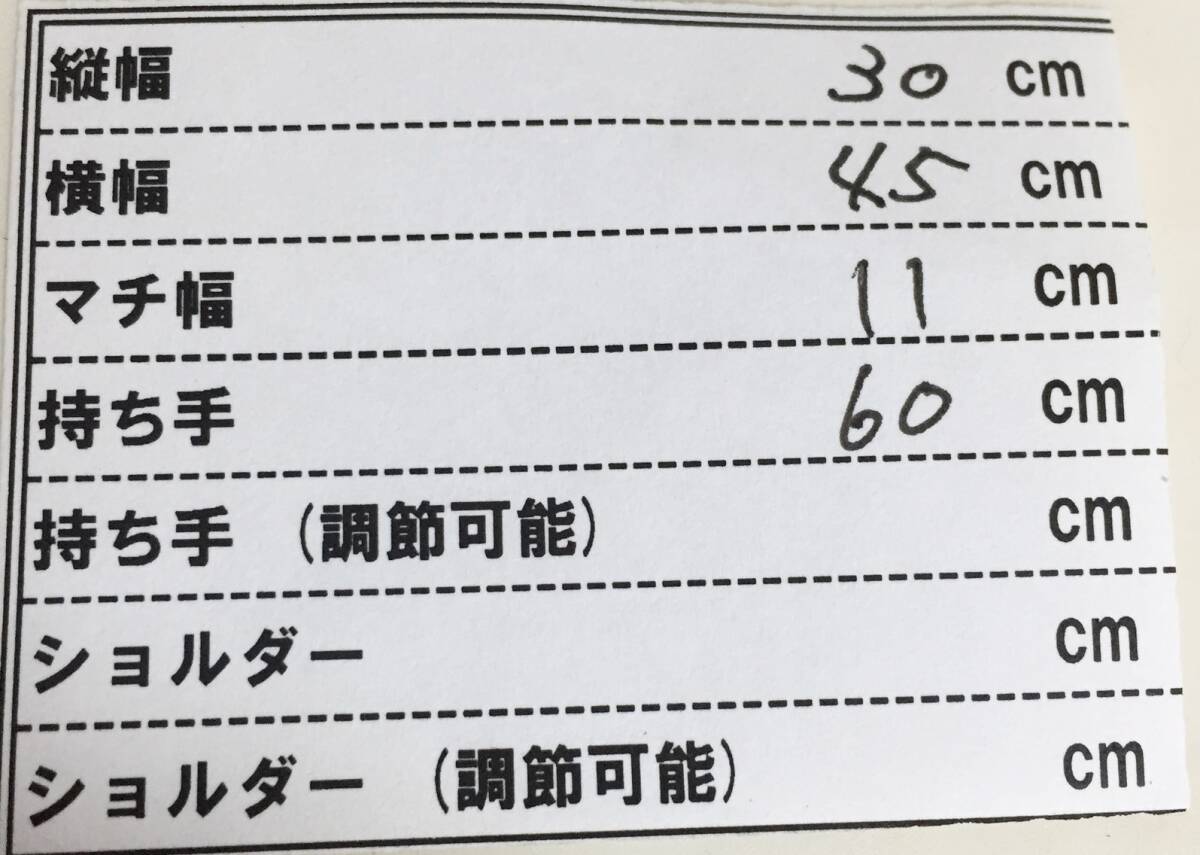 縦幅 30 cm
横幅 45 cm
マチ幅 11 cm
持ち手 60 cm
持ち手 (調節可能) cm
ショルダー cm
ショルダー (調節可能) cm